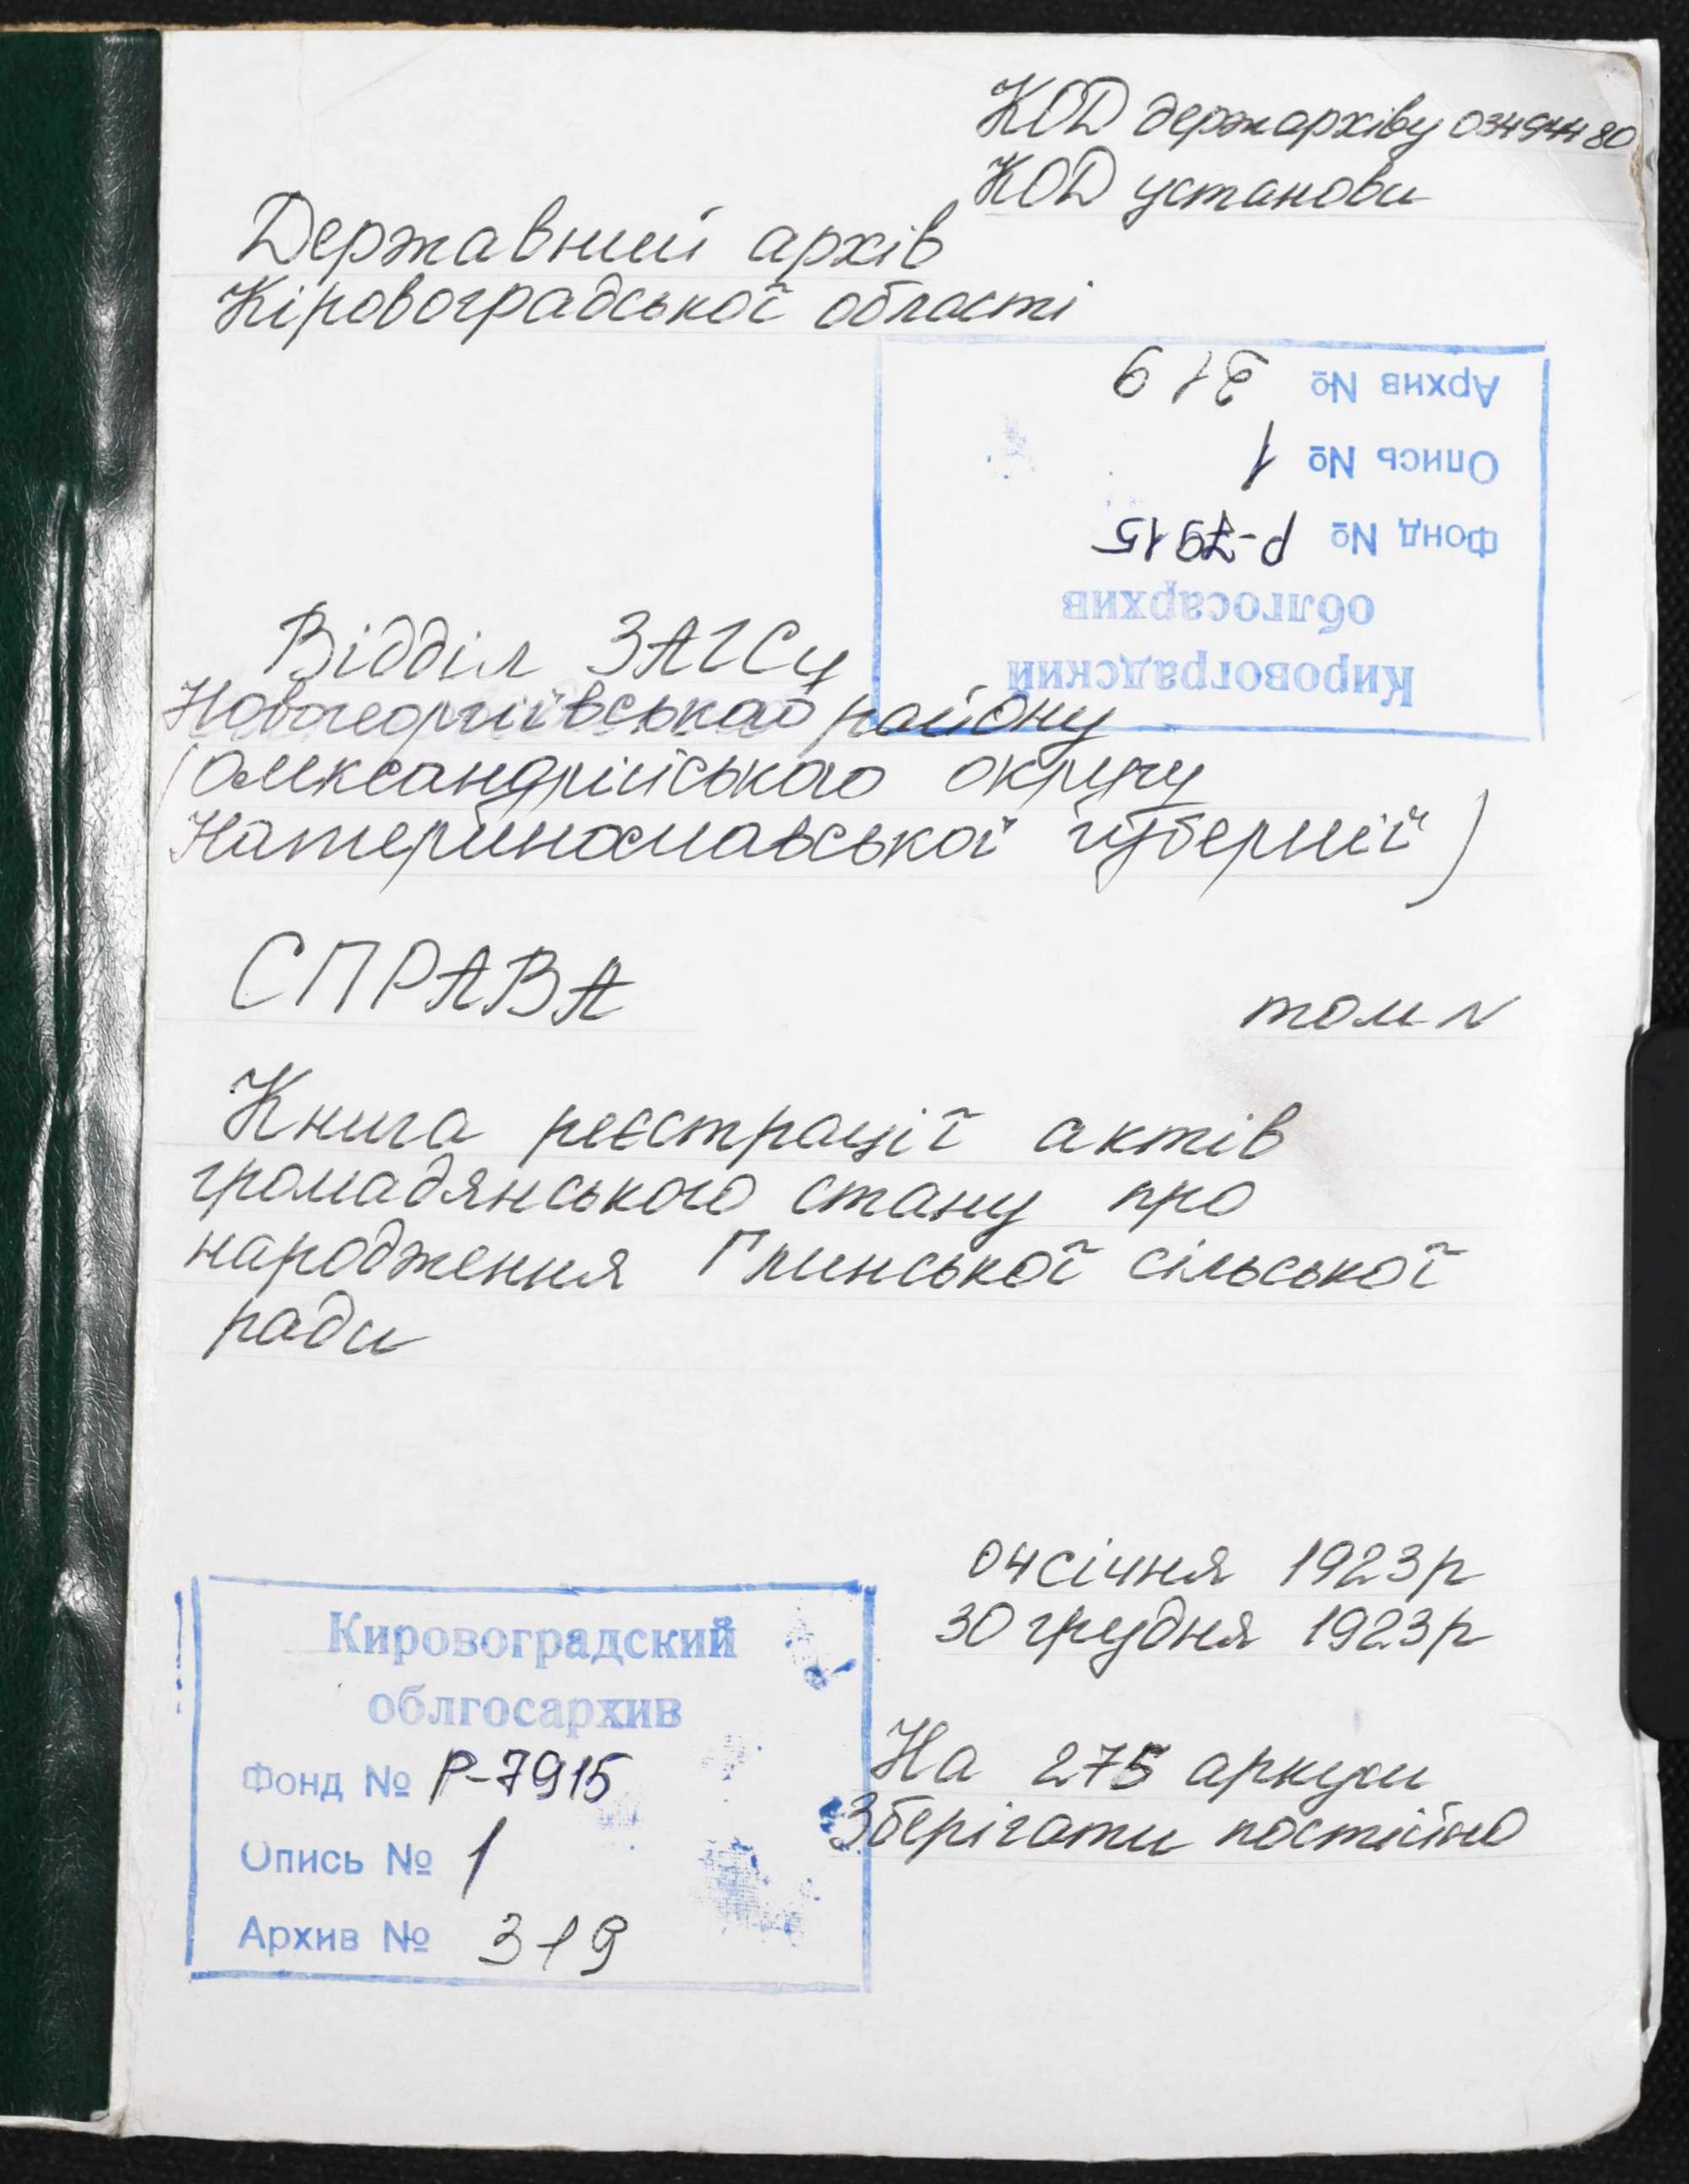 КОД держархіву 03494480
КОД установи
Державний архів
Кіровоградської області
Кировоградский
облгосархив
Фонд № р-7915
Опись № 1
Архив № 219
Відділ ЗАГСу
Новогеоргіївського району
(Олександрійського округу
Катеринославської губернії)
СПРАВА
том N
Книга реєстрації актів
громадянського стану про
народження Глинської сільської
ради
04 січня 1923р
30 грудня 1923р
Кировоградский
облгосархив
Фонд № Р-7915
Опись № 1
Архив № 319
На 275 аркуши
Зберігати постійно